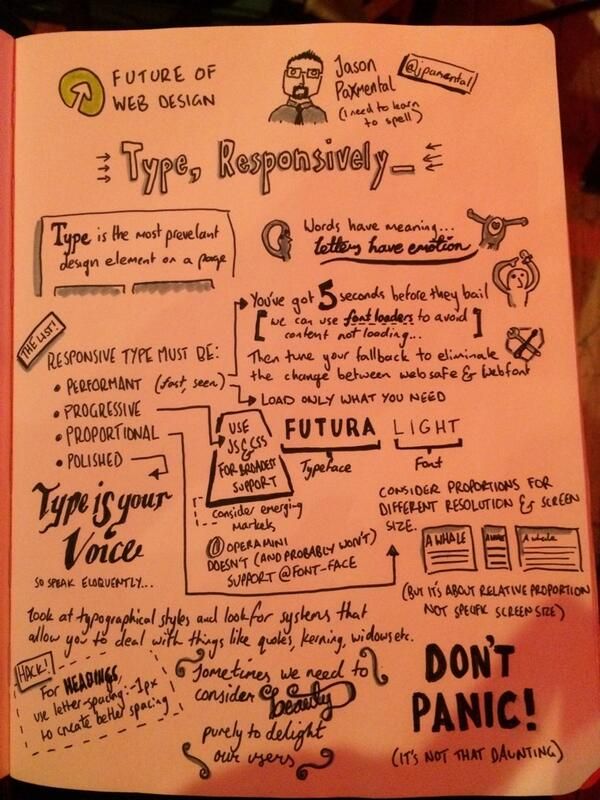 FUTURE OF
WEB DESIGN
Jason
Paxmental
(I need to learn
to spell)
@jpamental
Type, Responsively_
Type is the most prevelant
design element on a page
Words have meaning...
letters have emotion
THE LIST!
RESPONSIVE TYPE MUST BE:
• PERFORMANT (fast, seen)
• PROGRESSIVE
• PROPORTIONAL
• POLISHED
You've got 5 seconds before they bail
[we can use font loaders to avoid
content not loading...]
Then tune your fallback to eliminate
the change between websafe & webfont
LOAD ONLY WHAT YOU NEED
USE
JS CSS
&
FOR BROADEST
SUPPORT
consider emerging
markets
FUTURA LIGHT
Typeface
Font
OPERA MINI
DOESN'T (AND PROBABLY WON'T)
SUPPORT @FONT-FACE
Type is your
Voice
SO SPEAK ELOQUENTLY...
CONSIDER PROPORTIONS FOR
DIFFERENT RESOLUTION & SCREEN
SIZE.
A WHALE
A WHALE
A whale
(BUT IT'S ABOUT RELATIVE PROPORTION
NOT SPECIFIC SCREENSIZE)
look at typographical styles and look for systems that
allow you to deal with things like quotes, kerning, widows etc.
HACK!
For HEADINGS,
use letter-spacing:-1px
to create better spacing
Sometimes we need to
consider beauty
purely to delight
our users
DON'T
PANIC!
(IT'S NOT THAT DAUNTING)